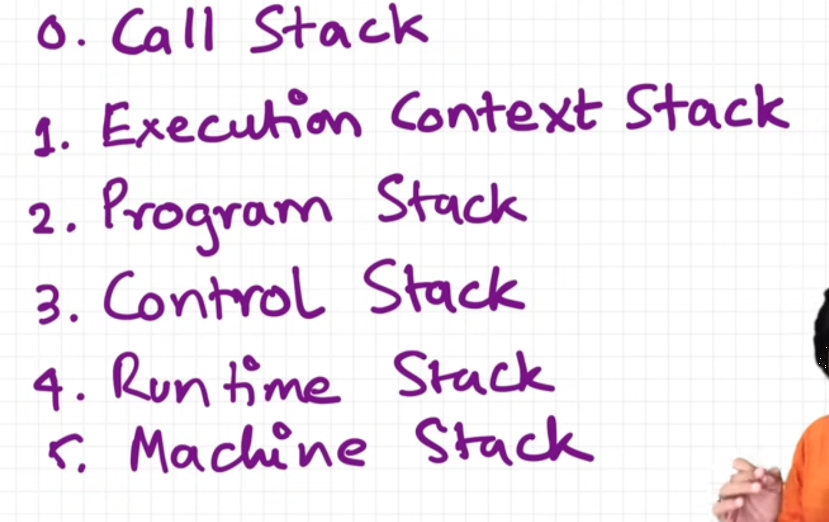 0. Call Stack
1. Execution Context Stack
2. Program Stack
3. Control Stack
4. Runtime Stack
5. Machine Stack